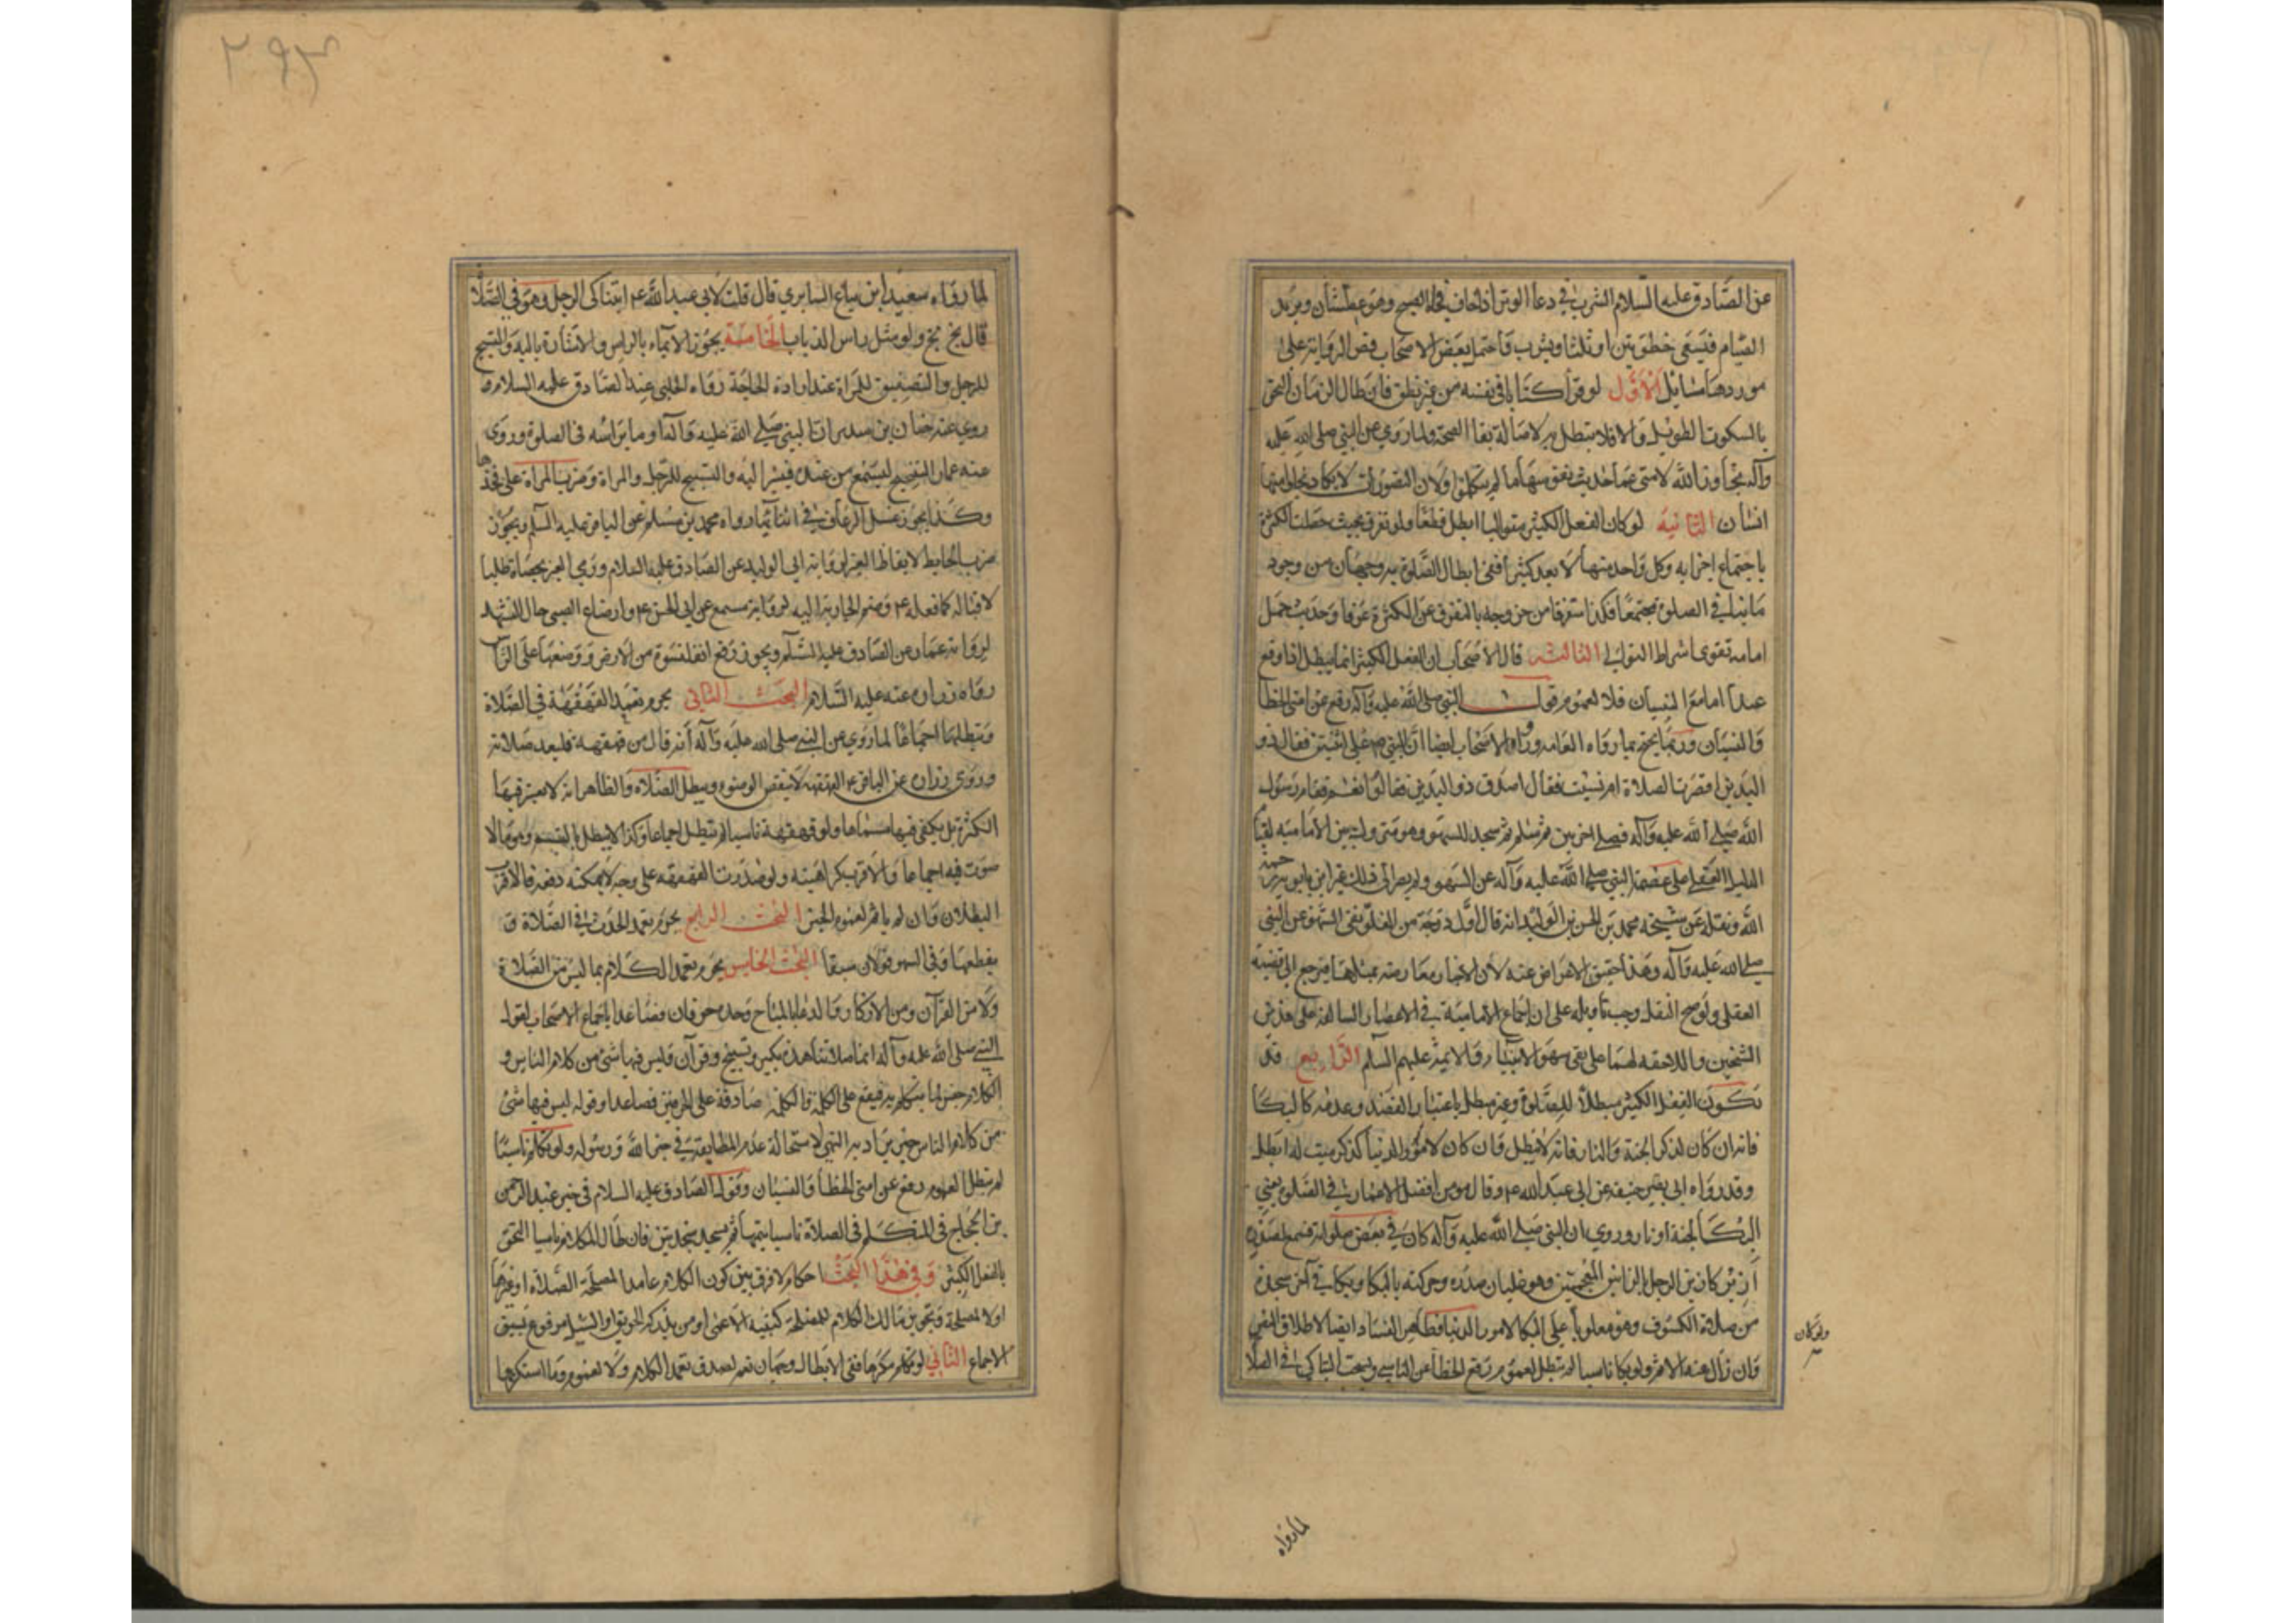 عن الصادق عليه السلام الشرب في دعا الوتر اذا خاف فجاه الصبح وهو عطشان ويريد
الصيام فيسعى خطوتين او ثلثا ويشرب واحتمل بعض الاصحاب قصر الرواية على
موردها مسائل الاول لو قرا كتابا في نفسه من غير نطق فان طال الزمان التحق
بالسكوت الطويل والا فلا تبطل به لاصالة بقا الصحة ولما روي عن النبي صلى الله عليه
وآله تجاوز الله لامتي عما حدثت نفوسها ما لم يتكلموا ولان التصورات لا يكاد يخلو منها
انسان الثانية لو كان الفعل الكثير متواليا ابطل قطعا ولو تفرق بحيث حصلت الكثرة
باجتماع اجزايه وكل واحد منها لا يعد كثيرا ففي ابطال الصلوة به وجهان من وجود
ما ينافي الصلوة مجتمعا فكذا متفرقا من خروجه بالتفرق عن الكثرة عرفا وحديث حمل
امامه تقوى اشراط التوالي الثالثة قال الاصحاب ان الفعل الكثير انما يبطل اذا وقع
عمدا اما مع النسيان فلا لعموم قول النبي صلى الله عليه وآله رفع عن امتي الخطا
والنسيان وربما يحتج بما رواه العامه ورواه الاصحاب ايضا ان النبي ص صلى اثنتين فقال ذو
اليدين اقصرت الصلاة ام نسيت فقال اصدق ذو اليدين فقالوا نعم فقام رسول
الله صلى الله عليه وآله فصلى اخريين ثم سلم ثم سجد للسهو وهو متروك بين الامامية لقيام
الدليل العقلي على عصمة النبي صلى الله عليه وآله عن السهو ولم يصر الى ذلك غير ابن بابويه رحمة
الله ونقله عن شيخه محمد بن الحسن بن الوليد انه قال اول درجة من الغلو نفي السهو عن النبي
صلى الله عليه وآله وهذا حقيق بالاعراض عنه لان الاخبار معارضه بمثلها فيرجع الى قضية
العقل ولو صح النقل وجب تاويله على ان اجماع الامامية في الاعصار السالفة على هذين
الشيخين واللاحقه لهما على نفي سهو الانبيا والايمة عليهم السلم الرابع قد
تكون الفعل الكثير مبطلا للصلوة وغير مبطل باعتبار القصد وعدمه كالبكا
فانه ان كان لذكر الجنة والنار فانه لا يبطل وان كان لامور الدنيا كذكر ميت له ابطل
وقد رواه ابي حنيفه عن ابي عبد الله ع وقال هو من افضل الاعمال في الصلوة يعني
البكا لجنة او نار وروي ان النبي صلى الله عليه وآله كان في بعض صلواته فسمع لصدره
ازيز كازيز الرجل وهو غليان صدره وحركته بالبكا وبكا في آخر سجدة
من صلاة الكسوف وهو مغلوبا على البكا لامور الدنيا فظاهر الفساد ايضا لاطلاق النص
وان زال عنه الاثم ولو بكا ناسيا لم تبطل لعموم رفع الخطا عن الناسي ويستحب التباكي في الصلا
ولو كان
لما رواه
٢٩٣
لما رواه سعيد ابن بياع السابري قال قلت لابي عبد الله ع ايتباكى الرجل وهو في الصلا
قال بخ بخ ولو مثل راس الذباب الخامسة يجوز الايماء بالراس والاشارة باليد والتسبيح
للرجل والتصفيق للمراة عند ارادة الحاجة رواه الحلبي عن الصادق عليه السلام و
روي عنه حنان بن سدير ان النبي صلى الله عليه وآله اوما براسه في الصلوة وروى
عنه عمار التنحنح ليسمع من عنده فيشير اليه والتسبيح للرجل والمراة وضرب المراة على فخذها
وكذا يجوز غسل الرعاف في اثنائها رواه محمد بن مسلم عن الباقر عليه السلم ويجوز
ضرب الحايط لايقاظ الغير لرواية ابي الوليد عن الصادق عليه السلام ورمي الغير بحصاة طلبا
لاقباله كما فعله ع وضم الجارية اليه لرواية مسمع عن ابي الحسن ع وارضاع الصبي حال التشهد
لرواية عمار عن الصادق عليه السلم ويجوز رفع القلنسوة من الارض ووضعها على الراس
رواه زراره عنه عليه السلام البحث الثاني يحرم تعمد القهقهة في الصلاة
وتبطلها اجماعا لما روي عن النبي صلى الله عليه وآله انه قال من قهقهه فليعد صلاته
وروى زراره عن الباقر ع القهقهه لا ينقض الوضوء ويبطل الصلاه والظاهر انه لا يعتبر فيها
الكثرة بل يكفي فيها مسماها ولو قهقهة ناسيا لم تبطل اجماعا وكذا لا يبطل بالتبسم وهو ما لا
صوت فيه اجماعا والاقرب كراهيته ولو صدرت القهقهه على وجه لا يمكنه دفعه فالاقرب
البطلان وان لم ياثم لعموم الخبر البحث الرابع يحرم تعمد الحدث في الصلاة و
يقطعها وفي السهو قولان سبقا البحث الخامس يحرم تعمد الكلام بما ليس من الصلاة
ولا من القرآن ومن الاذكار والدعا بالمباح وحده حرفان فصاعدا باجماع الاصحاب لقول
النبي صلى الله عليه وآله انما صلاتنا هذه تكبير وتسبيح وقرآن وليس فيها شئ من كلام الناس و
الكلام جنس لما يتكلم به فيقع على الكلمة والكلمة صادقة على الحرفين فصاعدا وقوله ليس فيها شئ
من كلام الناس خبر يراد به النهي لاستحالة عدم المطابقة في خبر الله ورسوله ولو تكلم ناسيا
لم تبطل لعموم رفع عن امتي الخطأ والنسيان وقول الصادق عليه السلام في خبر عبد الرحمن
بن الحجاج في المتكلم في الصلاة ناسيا يتمها ثم يسجد سجدتين فان طال الكلام ناسيا التحق
بالفعل الكثير وفي هذا البحث احكام لا فرق بين كون الكلام عامدا لمصلحة الصلاة او غيرها
او لا لمصلحة وتجويز مالك الكلام للمصلحة كتنبيه الاعمى او من يذكر الحريق او السيل مدفوع بسبق
الاجماع الثاني لو تكلم مكرها ففي الابطال وجهان نعم لصدق تعمد الكلام ولا لعموم وما استكرهوا